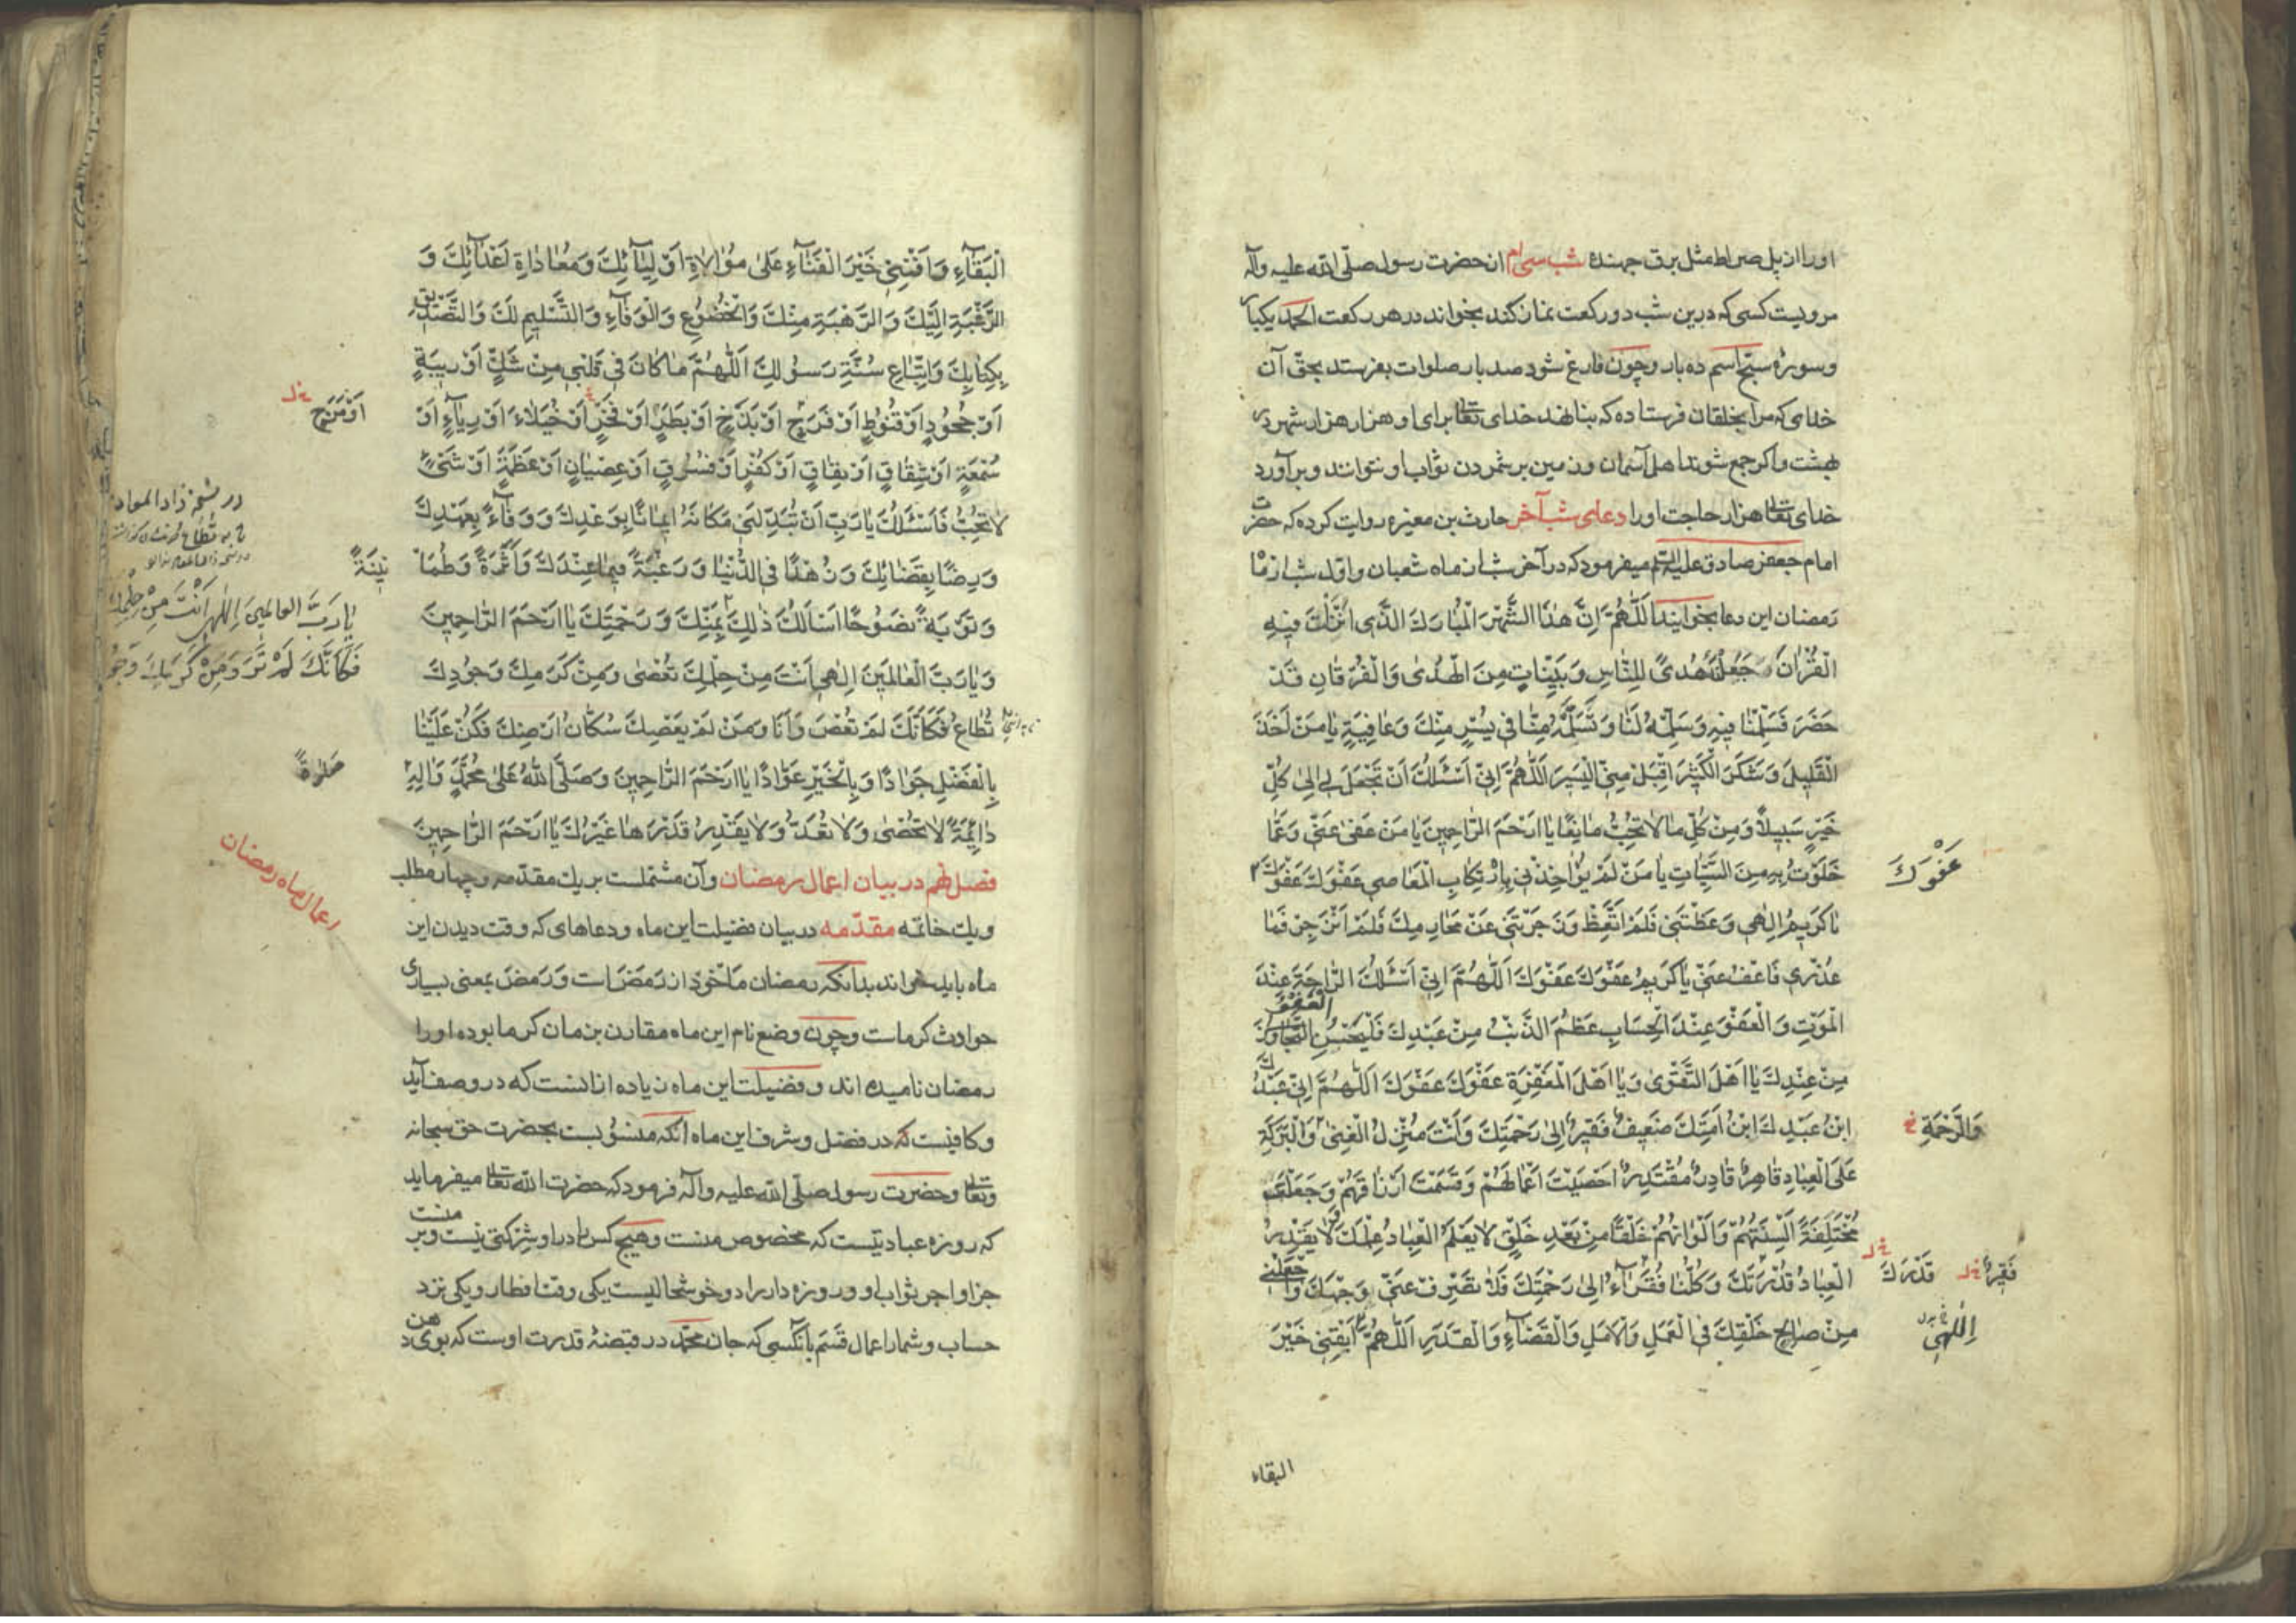 اورا از پل صراط مثل برق جهنده شب سی‌ام از حضرت رسول صلّی الله علیه وآله
مرویست کسی که درین شب دو رکعت نماز کند بخواند در هر رکعت الحمد یکبار
وسورهٔ سبّح اسم ده بار وچون فارغ شود صد بار صلوات بفرستد بحقّ آن
خدای که مرا بخلقان فرستاده که بنا نهد خدای تعالی برای او هزار هزار شهر در
بهشت واکر جمع شوند اهل آسمان وزمین بر شمردن ثواب او نتوانند وبر آورد
خدای تعالی هزار حاجت اورا دعای شب آخر حارث بن مغیره روایت کرده که حضرت
امام جعفر صادق علیه السّلم میفرمود که در آخر شب از ماه شعبان واول شب از ماه
رَمضان این دعا بخوانید اَللّهُمَّ اِنَّ هٰذَا الشَّهْرَ الْمُبارَكَ الَّذی اُنْزِلَتْ فیهِ
الْقُرْاٰنُ وَجَعَلْتَهُ هُدیً لِلنّاسِ وَبَیِّناتٍ مِنَ الْهُدیٰ وَالْفُرْقانِ قَدْ
حَضَرَ فَسَلِّمْنا فیهِ وَسَلِّمْهُ لَنا وَتَسَلَّمْهُ مِنّا فی یُسْرٍ مِنْكَ وَعافِیَةٍ یا مَنْ اَخَذَ
الْقَلیلَ وَشَكَرَ الْكَثیرَ اِقْبَلْ مِنّی الْیَسیرَ اَللّهُمَّ اِنّی اَسْئَلُكَ اَنْ تَجْعَلَ لی اِلیٰ كُلِّ
خَیْرٍ سَبیلاً وَمِنْ كُلِّ ما لا تُحِبُّ مانِعًا یا اَرْحَمَ الرّاحِمینَ یا مَنْ عَفیٰ عَنّی وَعَمّا
خَلَوْتُ بِهِ مِنَ السَّیِّئاتِ یا مَنْ لَمْ یُؤاخِذْنی بِارْتِكابِ الْمَعاصی عَفْوَكَ عَفْوَكَ
عَفْوَكَ
یا كَریمُ اِلٰهی وَعَظْتَنی فَلَمْ اَتَّعِظْ وَزَجَرْتَنی عَنْ مَحارِمِكَ فَلَمْ اَنْزَجِرْ فَما
عُذْری فَاعْفُ عَنّی یا كَریمُ عَفْوَكَ عَفْوَكَ اَللّهُمَّ اِنّی اَسْئَلُكَ الرّاحَةَ عِنْدَ
الْمَوْتِ وَالْعَفْوَ عِنْدَ الْحِسابِ عَظُمَ الذَّنْبُ مِنْ عَبْدِكَ فَلْیَحْسُنِ التَّجاوُزُ
الْعَفْوُ
مِنْ عِنْدِكَ یا اَهْلَ التَّقْویٰ وَیا اَهْلَ الْمَغْفِرَةِ عَفْوَكَ عَفْوَكَ اَللّهُمَّ اِنّی عَبْدُكَ
ابْنُ عَبْدِكَ ابْنُ اَمَتِكَ ضَعیفٌ فَقیرٌ اِلیٰ رَحْمَتِكَ وَاَنْتَ مُنْزِلُ الْغِنیٰ وَالْبَرَكَةِ
وَالرَّحْمَةِ خ
عَلَی الْعِبادِ قاهِرٌ قادِرٌ مُقْتَدِرٌ اَحْصَیْتَ اَعْمالَهُمْ وَقَسَمْتَ اَرْزاقَهُمْ وَجَعَلْتَهُمْ
مُخْتَلِفَةً اَلْسِنَتُهُمْ وَاَلْوانُهُمْ خَلْقًا مِنْ بَعْدِ خَلْقٍ لا یَعْلَمُ الْعِبادُ عِلْمَكَ وَلا یَقْدِرُ
الْعِبادُ قُدْرَتَكَ وَكُلُّنا فُقَراءُ اِلیٰ رَحْمَتِكَ فَلا تَصْرِفْ عَنّی وَجْهَكَ وَاجْعَلْنی
قَدْرَكَ خ ل
فَقیرٌ خ ل
مِنْ صالِحِ خَلْقِكَ فِی الْعَمَلِ وَالْاَمَلِ وَالْقَضاءِ وَالْقَدَرِ اَللّهُمَّ اَبْقِنی خَیْرَ
اِلٰهی
البقاء
الْبَقاءِ وَاَفْنِنی خَیْرَ الْفَناءِ عَلیٰ مُوالاةِ اَوْلِیائِكَ وَمُعاداةِ اَعْدائِكَ وَ
الرَّغْبَةِ اِلَیْكَ وَالرَّهْبَةِ مِنْكَ وَالْخُضُوعِ وَالْوَفاءِ وَالتَّسْلیمِ لَكَ وَالتَّصْدیقِ
بِكِتابِكَ وَاتِّباعِ سُنَّةِ رَسُولِكَ اَللّهُمَّ ما كانَ فی قَلْبی مِنْ شَكٍّ اَوْ ریبَةٍ
اَوْ جُحُودٍ اَوْ قُنُوطٍ اَوْ فَرَحٍ اَوْ بَذَخٍ اَوْ بَطَرٍ اَوْ فَخْرٍ اَوْ خُیَلاءَ اَوْ رِیاءٍ اَوْ
اَوْ مَرَحٍ خ ل
سُمْعَةٍ اَوْ شِقاقٍ اَوْ نِفاقٍ اَوْ كُفْرٍ اَوْ فُسُوقٍ اَوْ عِصْیانٍ اَوْ عَظَمَةٍ اَوْ شَیْءٍ
لا تُحِبُّ فَاَسْئَلُكَ یا رَبِّ اَنْ تُبَدِّلَنی مَكانَهُ ایمانًا بِوَعْدِكَ وَوَفاءً بِعَهْدِكَ
وَرِضًا بِقَضائِكَ وَزُهْدًا فِی الدُّنْیا وَرَغْبَةً فیما عِنْدَكَ وَاَثَرَةً وَطُمَاْ
نینَةً
وَتَوْبَةً نَصُوحًا اَسْاَلُكَ ذٰلِكَ بِمَنِّكَ وَرَحْمَتِكَ یا اَرْحَمَ الرّاحِمینَ
وَیا رَبَّ الْعالَمینَ اِلٰهی اَنْتَ مِنْ حِلْمِكَ تُعْصیٰ وَمِنْ كَرَمِكَ وَجُودِكَ
تُطاعُ فَكَاَنَّكَ لَمْ تُعْصَ وَاَنَا وَمَنْ لَمْ یَعْصِكَ سُكّانُ اَرْضِكَ فَكُنْ عَلَیْنا
بِالْفَضْلِ جَوادًا وَبِالْخَیْرِ عَوّادًا یا اَرْحَمَ الرّاحِمینَ وَصَلَّی اللهُ عَلیٰ مُحَمَّدٍ وَالِهِ
صَلوةً
دائِمَةً لا تُحْصیٰ وَلا تُعَدُّ وَلا یَقْدِرُ قَدْرَها غَیْرُكَ یا اَرْحَمَ الرّاحِمینَ
در نسخه زاد المعاد
یا رَبَّ العالمینَ اِلٰهی اَنْتَ مِنْ حِلْمِكَ
فَكَاَنَّكَ لَمْ تَرَ وَمِنْ كَرَمِكَ وَجُو
فصل نهم در بیان اعمال رمضان وآن مشتملست بر یك مقدّمه وچهار مطلب
اعمال ماه رمضان
ویك خاتمه مقدّمه در بیان فضیلت این ماه ودعاهای که وقت دیدن این
ماه باید خواند بدانکه رمضان مأخوذ از رَمَضَ است ورَمَضَ بمعنی بسیاری
حوادث کرماست وچون وضع نام این ماه مقارن بزمان کرما بوده اورا
رمضان نامیده‌اند وفضیلت این ماه زیاده از انست که در وصف آید
وکافیست که در فضل وشرف این ماه آنکه منسوبست بحضرت حق سبحانه
وتعالی وحضرت رسول صلّی الله علیه وآله فرمود که حضرت الله تعالی میفرماید
که روزه عبادتیست که مخصوص منست وهیچ کس را در او شرکتی نیست وبر منست
جزا واجر ثواب او وروزه دار را دو خوشحالیست یکی وقت افطار ویکی نزد
حساب وشمار اعمال قَسَم بآنکسی که جان محمّد در قبضهٔ قدرت اوست که بوی دهن